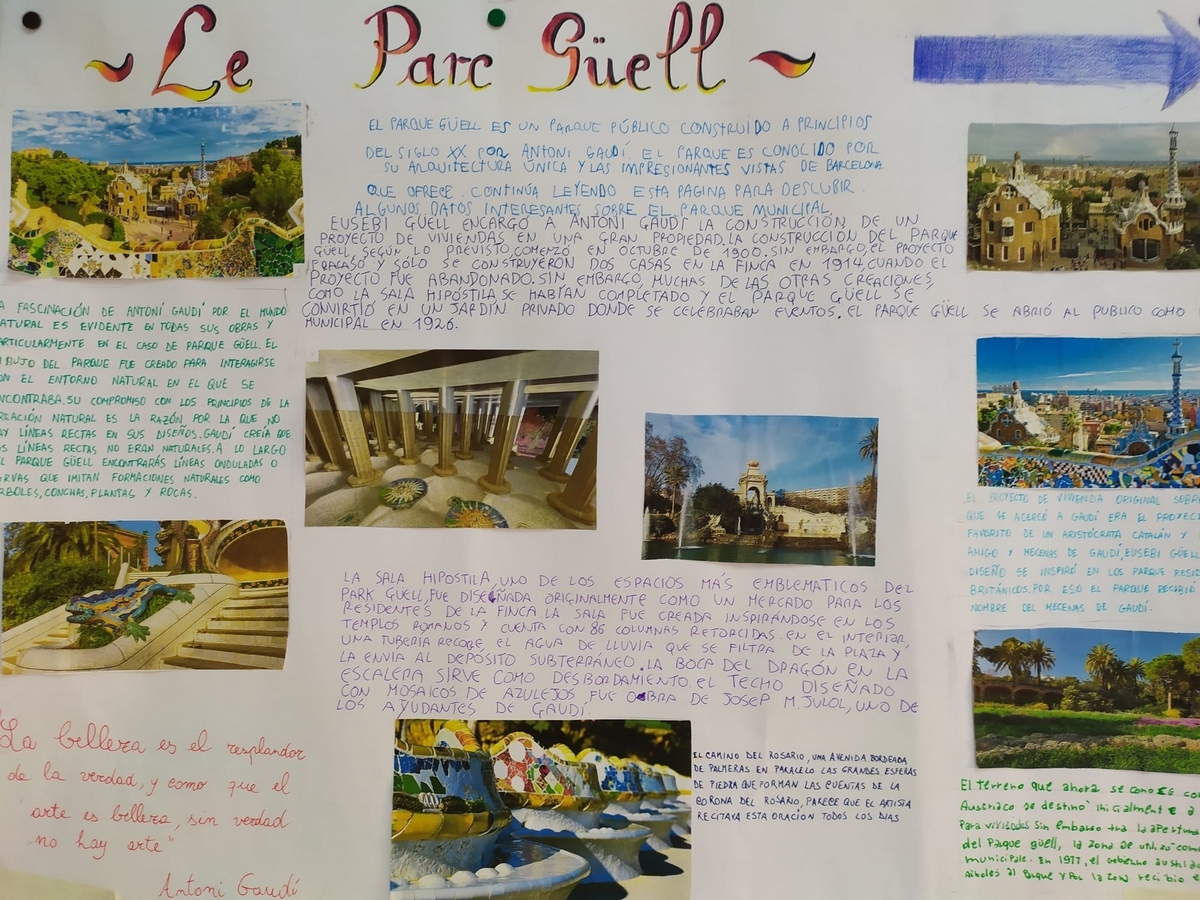 ~ Le Parc Güell ~
EL PARQUE GÜELL ES UN PARQUE PÚBLICO CONSTRUIDO A PRINCIPIOS
DEL SIGLO XX POR ANTONI GAUDÍ. EL PARQUE ES CONOCIDO POR
SU ARQUITECTURA ÚNICA Y LAS IMPRESIONANTES VISTAS DE BARCELONA
QUE OFRECE. CONTINÚA LEYENDO ESTA PAGINA PARA DESCUBIR
ALGUNOS DATOS INTERESANTES SOBRE EL PARQUE MUNICIPAL
EUSEBI GÜELL ENCARGÓ A ANTONI GAUDÍ LA CONSTRUCCIÓN DE UN
PROYECTO DE VIVIENDAS EN UNA GRAN PROPIEDAD. LA CONSTRUCCIÓN DEL PARQUE
GÜELL SEGÚN LO PREVISTO, COMENZÓ EN OCTUBRE DE 1900. SIN EMBARGO, EL PROYECTO
FRACASÓ Y SÓLO SE CONSTRUYERON DOS CASAS EN LA FINCA EN 1914, CUANDO EL
PROYECTO FUE ABANDONADO. SIN EMBARGO, MUCHAS DE LAS OTRAS CREACIONES,
COMO LA SALA HIPÓSTILA SE HABÍAN COMPLETADO Y EL PARQUE GÜELL SE
CONVIRTIÓ EN UN JARDÍN PRIVADO DONDE SE CELEBRABAN EVENTOS. EL PARQUE GÜELL SE ABRIÓ AL PUBLICO COMO
MUNICIPAL EN 1926.
A FASCINACIÓN DE ANTONI GAUDÍ POR EL MUNDO
ATURAL ES EVIDENTE EN TODAS SUS OBRAS Y
ARTICULARMENTE EN EL CASO DE PARQUE GÜELL. EL
IBUJO DEL PARQUE FUE CREADO PARA INTERAGIRSE
ON EL ENTORNO NATURAL EN EL QUE SE
NCONTRABA. SU COMPROMISO CON LOS PRINCIPIOS DE LA
REACIÓN NATURAL ES LA RAZÓN POR LA QUE NO
AY LÍNEAS RECTAS EN SUS DISEÑOS. GAUDÍ CREÍA QUE
S LÍNEAS RECTAS NO ERAN NATURALES. A LO LARGO
L PARQUE GÜELL ENCONTRARÁS LÍNEAS ONDULADAS O
RVAS QUE IMITAN FORMACIONES NATURALES COMO
RBOLES, CONCHAS, PLANTAS Y ROCAS.
"La belleza es el resplandor
de la verdad, y como que el
arte es belleza, sin verdad
no hay arte"
Antoni Gaudí
LA SALA HIPOSTILA, UNO DE LOS ESPACIOS MÁS EMBLEMATICOS DEL
PARK GÜELL, FUE DISEÑADA ORIGINALMENTE COMO UN MERCADO PARA LOS
RESIDENTES DE LA FINCA. LA SALA FUE CREADA INSPIRÁNDOSE EN LOS
TEMPLOS ROMANOS Y CUENTA CON 86 COLUMNAS RETORCIDAS. EN EL INTERIOR,
UNA TUBERÍA RECOGE EL AGUA DE LLUVIA QUE SE FILTRA DE LA PLAZA Y
LA ENVIA AL DEPÓSITO SUBTERRÁNEO. LA BOCA DEL DRAGÓN EN LA
ESCALERA SIRVE COMO DESBORDAMIENTO. EL TECHO DISEÑADO
CON MOSAICOS DE AZULEJOS FUE OBRA DE JOSEP M. JULOL, UNO DE
LOS AYUDANTES DE GAUDÍ.
EL CAMINO DEL ROSARIO, UNA AVENIDA BORDEADA
DE PALMERAS EN PARACELO LAS GRANDES ESFERAS
DE PIEDRA QUE FORMAN LAS CUENTAS DE LA
CORONA DEL ROSARIO, PARECE QUE EL ARTISTA
RECITAVA ESTA ORACIÓN TODOS LOS DIAS
EL PROYECTO DE VIVIENDA ORIGINAL SOBR
QUE SE ACERCÓ A GAUDÍ ERA EL PROYEC
FAVORITO DE UN ARISTÓCRATA CATALÁN Y
AMIGO Y MECENAS DE GAUDÍ, EUSEBI GÜEL
DISEÑO SE INSPIRÓ EN LOS PARQUE RESID
BRITÁNICOS. POR ESO EL PARQUE RECIBIÓ
NOMBRE DEL MECENAS DE GAUDÍ.
El terreno que ahora se conoce co
Austriaco se destinó inicialmente a
Para viviendas sin embarso tra la apertura
del Parque güell, la zona se utilizó como
municipale. En 1977, el gobierno austria
árboles al Parque y Por la zona recibió e